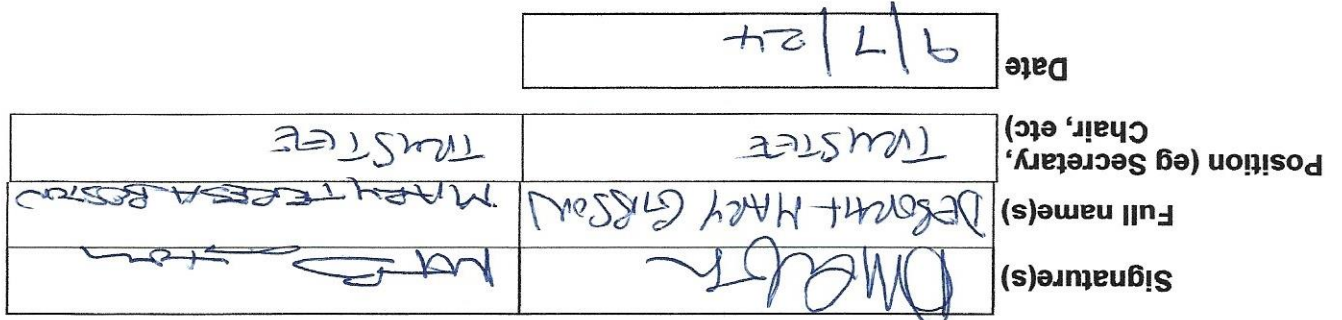 Signature(s)
Full name(s) DEBORAH MARY GIBSON MARY TERESA BESTON
Position (eg Secretary, Chair, etc) TRUSTEE TRUSTEE
Date 9/7/24